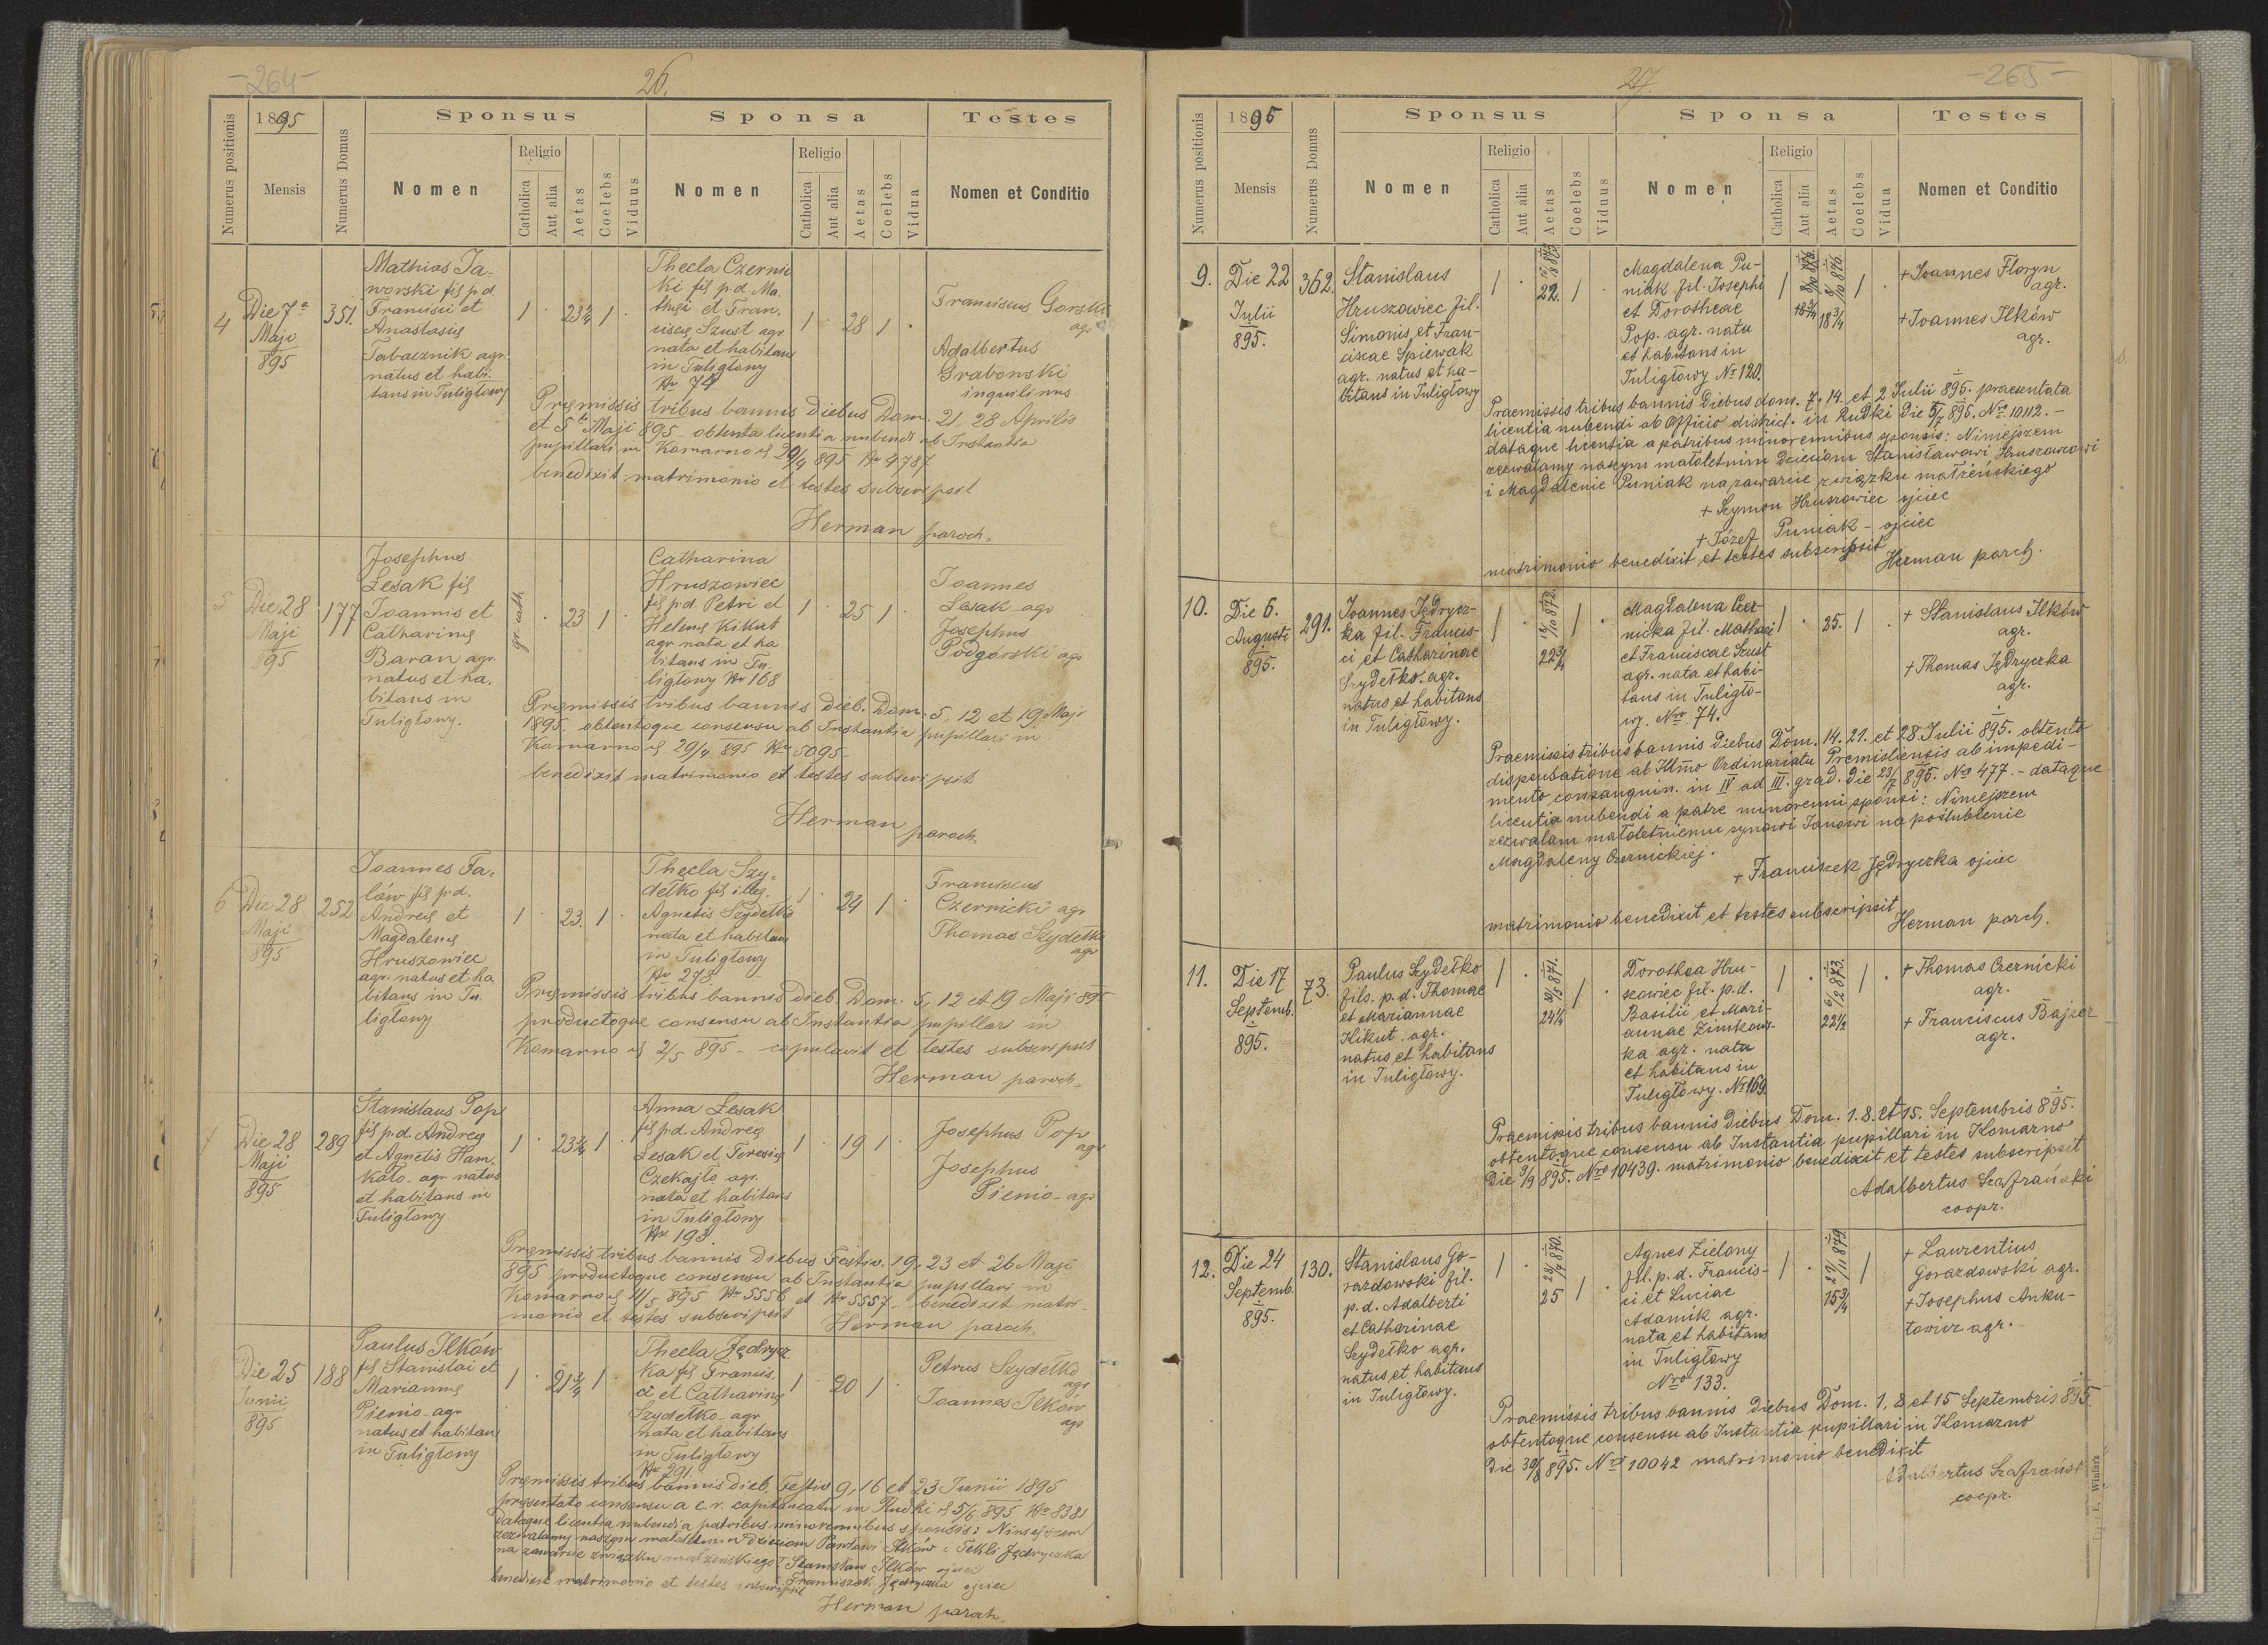 -264-
26.
Numerus positionis
1895
Mensis
Numerus Domus
Sponsus
Nomen
Religio
Catholica
Aut alia
Aetas
Coelebs
Viduus
Sponsa
Nomen
Religio
Catholica
Aut alia
Aetas
Coelebs
Vidua
Testes
Nomen et Conditio
4
Die 7a
Maji
895
351.
Mathias Ja-
worski fil p.d.
Francisci et
Anastasię
Tabacznik agr.
natus et habi.
tans in Tuligłowy
1 · 23 3/4 1 ·
Thecla Czernic
ki fil p.d. Ma.
thęi et Fran.
ciscę Szust agr.
nata et habitans
in Tuligłowy
Nr 74
1 · 28 1 ·
Franciscus Gorski
agr
Adalbertus
Grabowski
inquilinus
Pręmissis tribus bannis Diebus Dom. 21, 28 Aprilis
et 5 Maji 895 obtenta licentia nubendi ab Instantia
pupillari in Komarno d 29/4 895 Nr 4787
benedixit matrimonio et testes subscripsit
Herman paroch.
5
Die 28
Maji
895
177
Josephus
Lesak fil
Joannis et
Catharinę
Baran agr.
natus et ha.
bitans in
Tuligłowy.
gr. cath. · 23 1 ·
Catharina
Hruszowiec
fil p.d. Petri et
Helenę Kikut
agr nata et ha
bitans in Tu.
ligłowy Nr 168
1 · 25 1 ·
Joannes
Lesak agr
Josephus
Podgórski agr
Pręmissis tribus bannis dieb. Dom. 5, 12 et 19 Maji
1895. obtentoque consensu ab Instantia pupillari in
Komarno d 29/4 895 Nr 5095
benedixit matrimonio et testes subscripsit
Herman paroch
6
Die 28
Maji
895
252
Joannes Fa.
lów fil p.d.
Andreę et
Magdalenę
Hruszowiec
agr. natus et ha
bitans in Tu.
ligłowy
1 · 23. 1 ·
Thecla Szy.
dełko fil illeg.
Agnetis Szydełko
nata et habitans
in Tuligłowy
Nr 273.
1 · 24 1 ·
Franciscus
Czernicki agr
Thomas Szydełko
agr
Pręmissis tribus bannis dieb. Dom. 5, 12 et 19 Maji 895
productoque consensu ab Instantia pupillari in
Komarno d 2/5 895 - copulavit et testes subscripsit
Herman paroch.
7
Die 28
Maji
895
289
Stanislaus Pop
fil p.d. Andreę
et Agnetis Ham.
kało agr natus
et habitans in
Tuligłowy
1 · 23 3/4 1 ·
Anna Lesak
fil p.d. Andreę
Lesak et Teresię
Czekajło agr.
nata et habitans
in Tuligłowy
Nr 193.
1 · 19 1 ·
Josephus Pop
agr
Josephus
Pienio - agr
Pręmissis tribus bannis Diebus Festiv. 19, 23 et 26 Maji
895 productoque consensu ab Instantia pupillari in
Komarno d 11/5 895 Nr 5556 et Nr 5557 - benedixit matri.
monio et testes subscripsit Herman paroch.
Die 25
Junii
895
188
Paulus Ilków
fil Stanislai et
Mariannę
Pienio agr
natus et habitans
in Tuligłowy
1 · 21 3/4 1 ·
Thecla Jędrycz
ka fil Francis.
ci et Catharinę
Szydełko agr
nata et habitans
in Tuligłowy
Nr 291.
1 · 20 1 ·
Petrus Szydełko
agr
Joannes Ilków
agr
Pręmissis tribus bannis dieb. Festiv 9, 16 et 23 Junii 1895
pręsentato consensu a c. r. capitaneatu in Rudki d 5/6 895 Nr 8381
dataque licentia nubendi a patribus minorennibus sponsis: Niniejszem
zezwalamy naszym małoletnim dzieciom Pawłowi Ilków i Tekli Jędryczka
na zawarcie związku małżeńskiego † Stanisław Ilków ojciec
† Franciszek Jędryczka ojciec
benedixit matrimonio et testes subscripsit
Herman paroch.
-265-
27
Numerus positionis
1895
Mensis
Numerus Domus
Sponsus
Nomen
Religio
Catholica
Aut alia
Aetas
Coelebs
Viduus
Sponsa
Nomen
Religio
Catholica
Aut alia
Aetas
Coelebs
Vidua
Testes
Nomen et Conditio
9.
Die 22
Julii
895.
362.
Stanislaus
Hruszowiec fil.
Simonis et Fran-
ciscae Spiewak
agr. natus et ha-
bitans in Tuligłowy
1 · 22. 1 ·
Magdalena Pu-
niak fil. Josephi
et Dorotheae
Pop. agr. nata
et habitans in
Tuligłowy Nr 120.
1 18 3/4 9/10 876. 18 3/4 1 ·
+ Joannes Floryn
agr.
+ Joannes Ilków
agr.
Praemissis tribus bannis diebus dom. 7. 14. et 2 Julii 895. praesentata
licentia nubendi ab Officio district. in Rudki die 5/7 895. Nro. 10112. -
dataque licentia a patribus minorennibus sponsis: Niniejszem
zezwalamy naszym małoletnim dzieciom Stanisławowi Hruszowcowi
i Magdalenie Puniak na zawarcie związku małżeńskiego
+ Szymon Hruszowiec ojciec
+ Józef Puniak - ojciec
matrimonio benedixit et testes subscripsit
Herman parch.
10.
Die 6.
Augusti
895.
291.
Joannes Jędrycz-
ka fil. Francis-
ci et Catharinae
Szydełko. agr.
natus et habitans
in Tuligłowy.
1 · 22 3/4 1 ·
Magdalena Czer-
nicka fil. Mathaei
et Franciscae Szust
agr. nata et habi-
tans in Tuligło-
wy. Nro 74.
1 · 25. 1 ·
+ Stanislaus Ilków
agr.
+ Thomas Jędryczka
agr.
Praemissis tribus bannis diebus Dom. 14. 21. et 28. Julii 895. obtenta
dispensatione ab Illmo Ordinariatu Premisliensis ab impedi-
mento consanguin. in IV ad III. grad. die 23/7 895. No 477. - dataque
licentia nubendi a patre minorenni sponsi: Niniejszem
zezwalam małoletniemu synowi Janowi na poślubienie
Magdaleny Czernickiej.
+ Franciszek Jędryczka ojciec
matrimonio benedixit et testes subscripsit
Herman parch.
11.
Die 17
Septemb.
895.
73.
Paulus Szydełko
fils. p. d. Thomae
et Mariannae
Kikut. agr.
natus et habitans
in Tuligłowy.
1 · 24 1/4 1 ·
Dorothea Hru-
szowiec fil. p. d.
Basilii et Mari-
annae Zimkows-
ka agr. nata
et habitans in
Tuligłowy. Nr 169.
1 · 6/2 873. 22 1/2 1 ·
+ Thomas Czernicki
agr.
+ Franciscus Bajzer
agr.
Praemissis tribus bannis diebus Dom. 1. 8. et 15. Septembris 895.
obtentoque consensu ab Instantia pupillari in Komarno
Die 9/9 895. Nro 10439. matrimonio benedixit et testes subscripsit
Adalbertus Szafrański
coopr.
12.
Die 24
Septemb.
895.
130.
Stanislaus Go-
razdowski fil.
p. d. Adalberti
et Catharinae
Szydełko agr.
natus et habitans
in Tuligłowy.
1 · 25 1 ·
Agnes Zielony
fil. p. d. Francis-
ci et Luciae
Adamik agr.
nata et habitans
in Tuligłowy
Nro 133.
1 · 27/11 879. 15 3/4 1
+ Laurentius
Gorazdowski agr.
+ Josephus Anku-
towicz agr.
Praemissis tribus bannis diebus Dom. 1, 8 et 15 Septembris 895.
obtentoque consensu ab Instantia pupillari in Komarno
Die 30/8 895. Nro 10042 matrimonio benedixit
Adalbertus Szafrański
coopr.